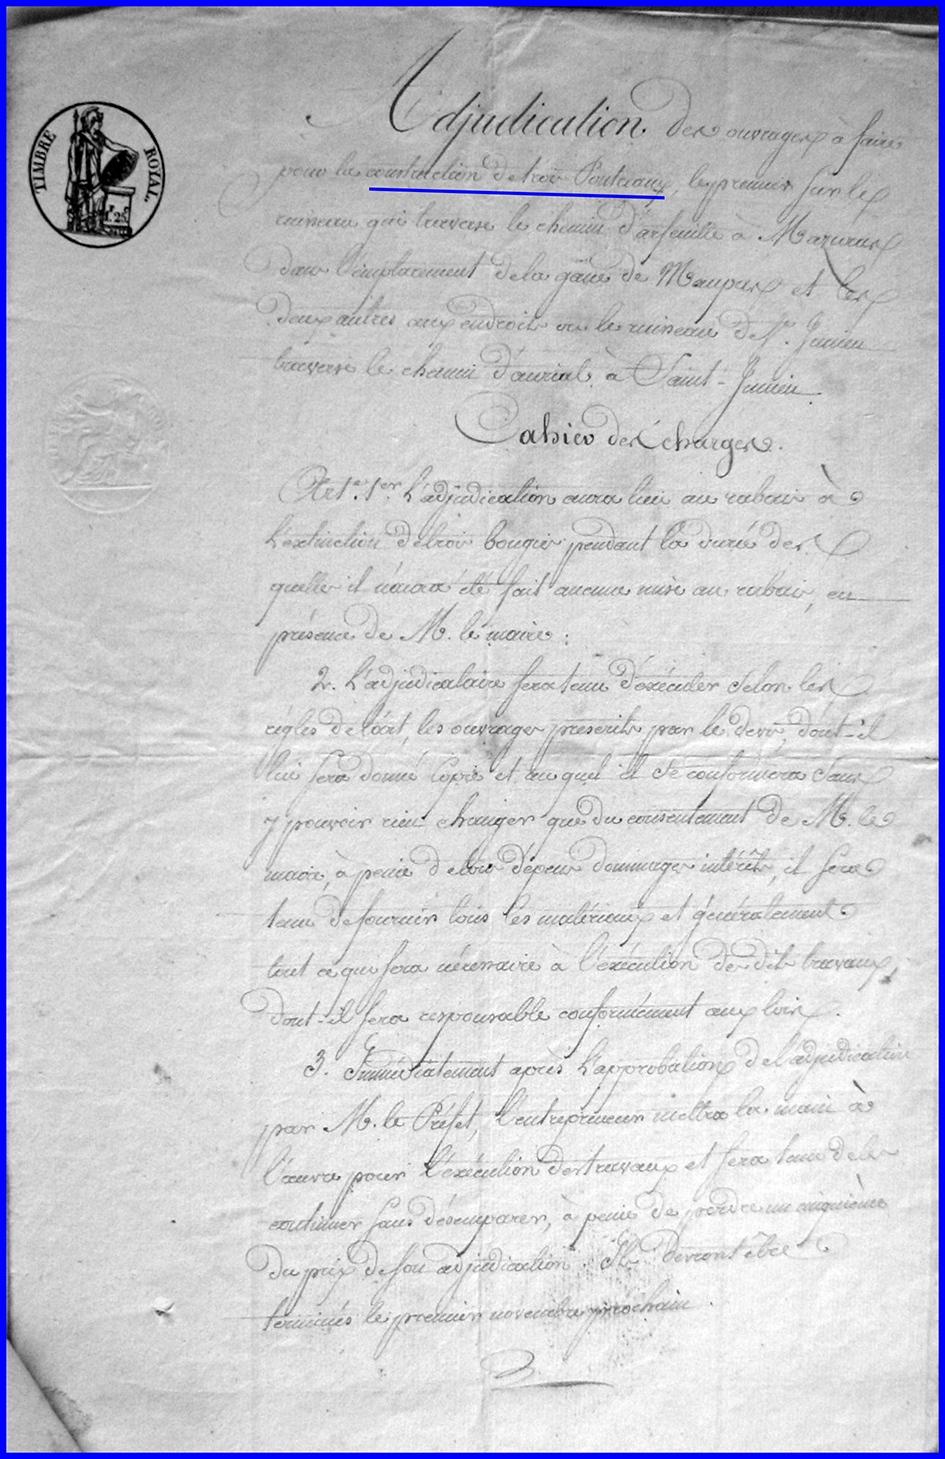 TIMBRE ROYAL.
1f 25c
Adjudication des ouvrages à faire
pour la construction de trois Ponteaux, le premier sur le
ruineau qui traverse le chemin d'arfeuille à Mazuras
dans l'emplacement de la gâne de Maupas et les
deux autres aux endroits où le ruineau de St. Junien
traverse le chemin d'auriat à Saint-Junien.
Cahier des charges.
Art. 1er. L'adjudication aura lieu au rabais à
l'extinction de trois bougies pendant la durée des
quelles il n'aura été fait aucune mise au rabais, en
présence de M. le maire.
2. L'adjudicataire sera tenu d'exécuter selon les
règles de l'art, les ouvrages prescrits par le devis, dont-il
lui sera donné copie et au quel il se conformera sans
y pouvoir rien changer que du consentement de M. le
maire, à peine de tous dépens dommages intérêts, il sera
tenu de fournir tous les matériaux et généralement
tout ce qui sera nécessaire à l'exécution des dits travaux,
dont-il sera responsable conformément aux lois.
3. Immédiatement après l'approbation de l'adjudication
par M. le Préfet, l'entrepreneur mettra la main à
l'œuvre pour l'exécution des travaux et sera tenu de les
continuer sans désemparer, à peine de perdre un cinquième
du prix de son adjudication. Ils devront être
terminés le premier novembre prochain.